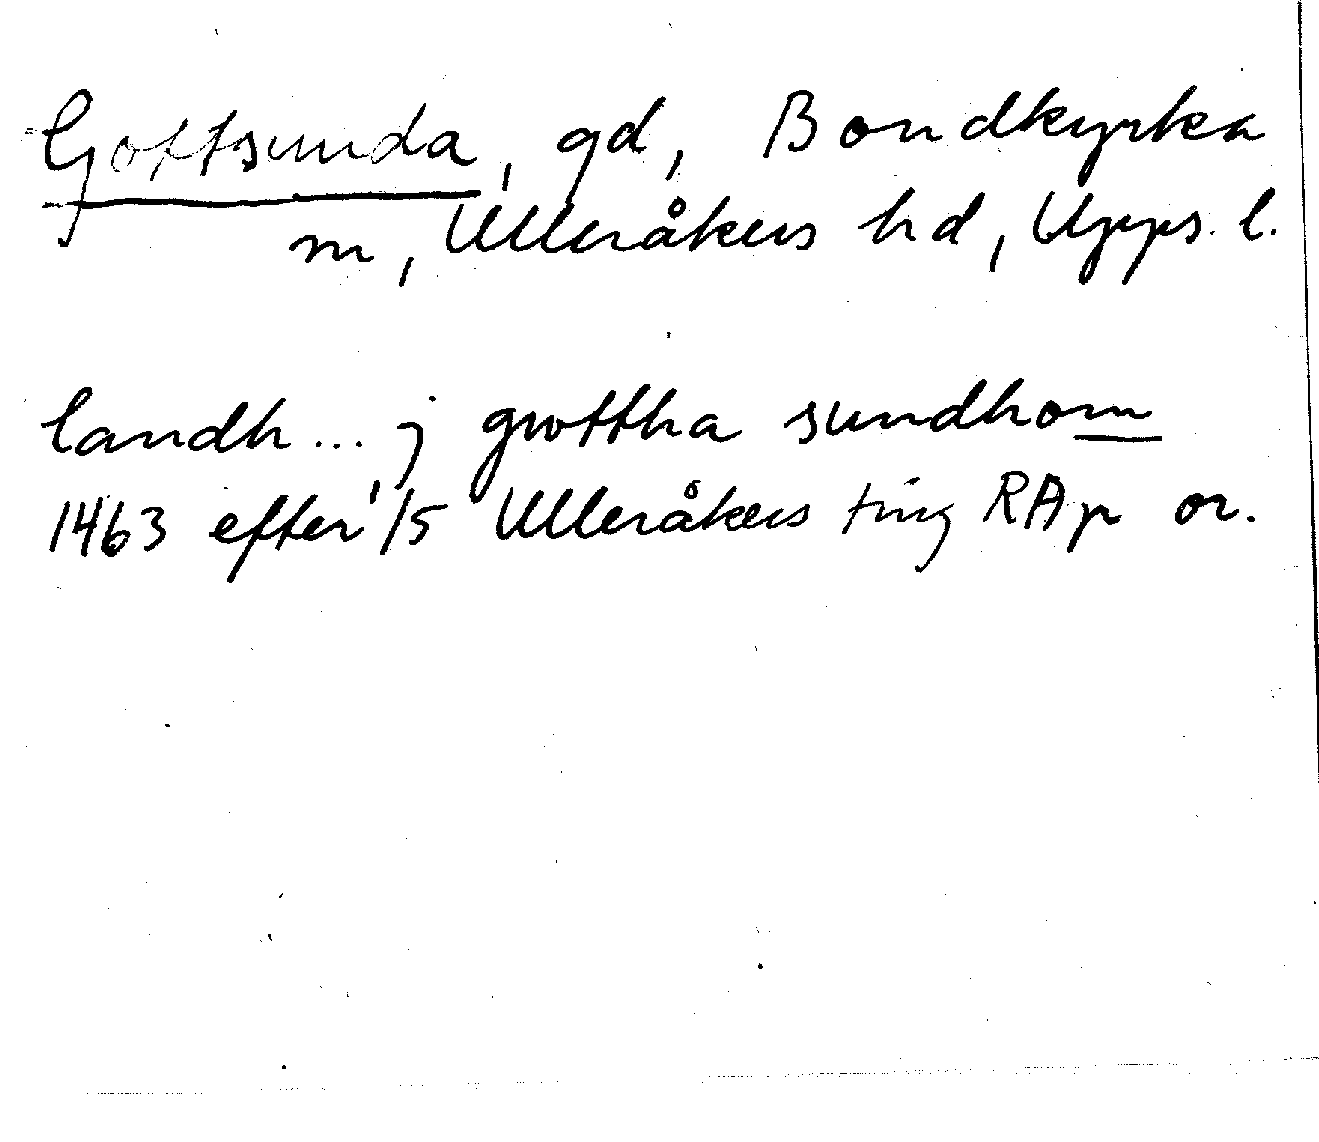 Gottsunda, gd, Bondkyrka
sn, Ulleråkers hd, Upps. l.
landh... j grottha sundhom
1463 efter 1/5 Ulleråkers ting RAp or.